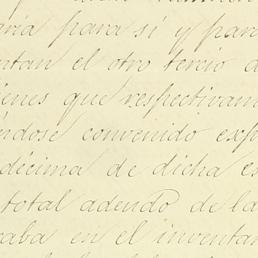 aria para sí y para
ntan el otro tercio d
ienes que respectivam
éndose convenido exp
décima de dicha es
total adendo de la
caba en el inventar